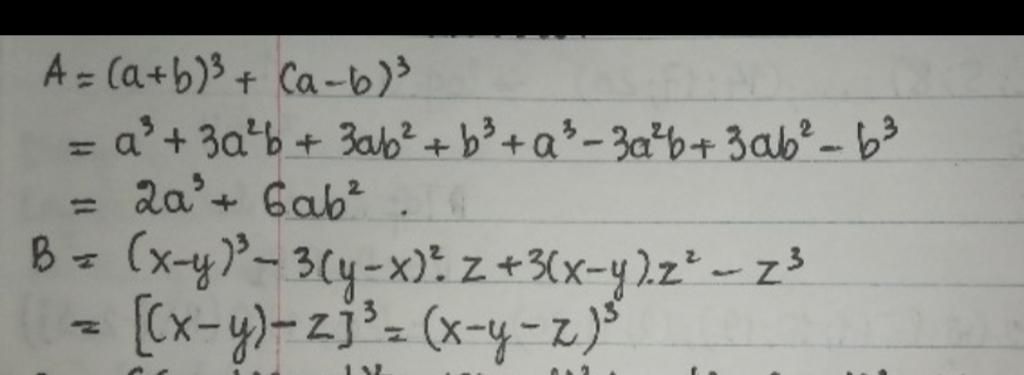 A = (a+b)³ + (a-b)³
= a³ + 3a²b + 3ab² + b³ + a³ - 3a²b + 3ab² - b³
= 2a³ + 6ab² .
B = (x-y)³ - 3(y-x)².z + 3(x-y).z² - z³
= [(x-y)-z]³ = (x-y-z)³